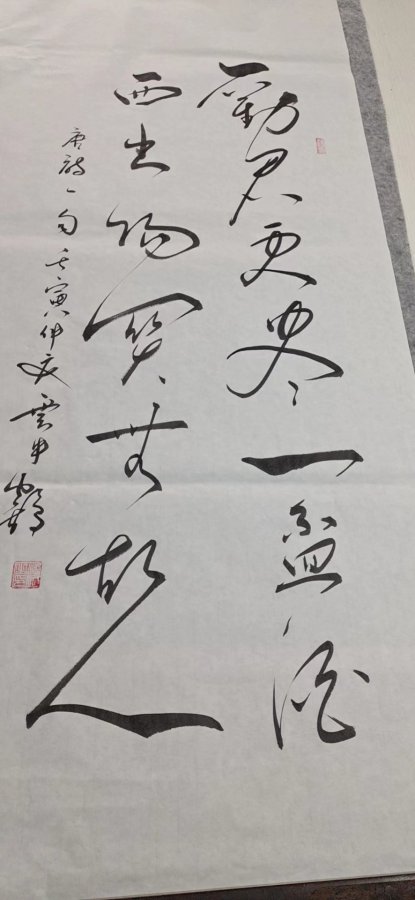 勸君更盡一盃酒
西出陽關無故人
唐詩一句壬寅仲夏雲中鶴